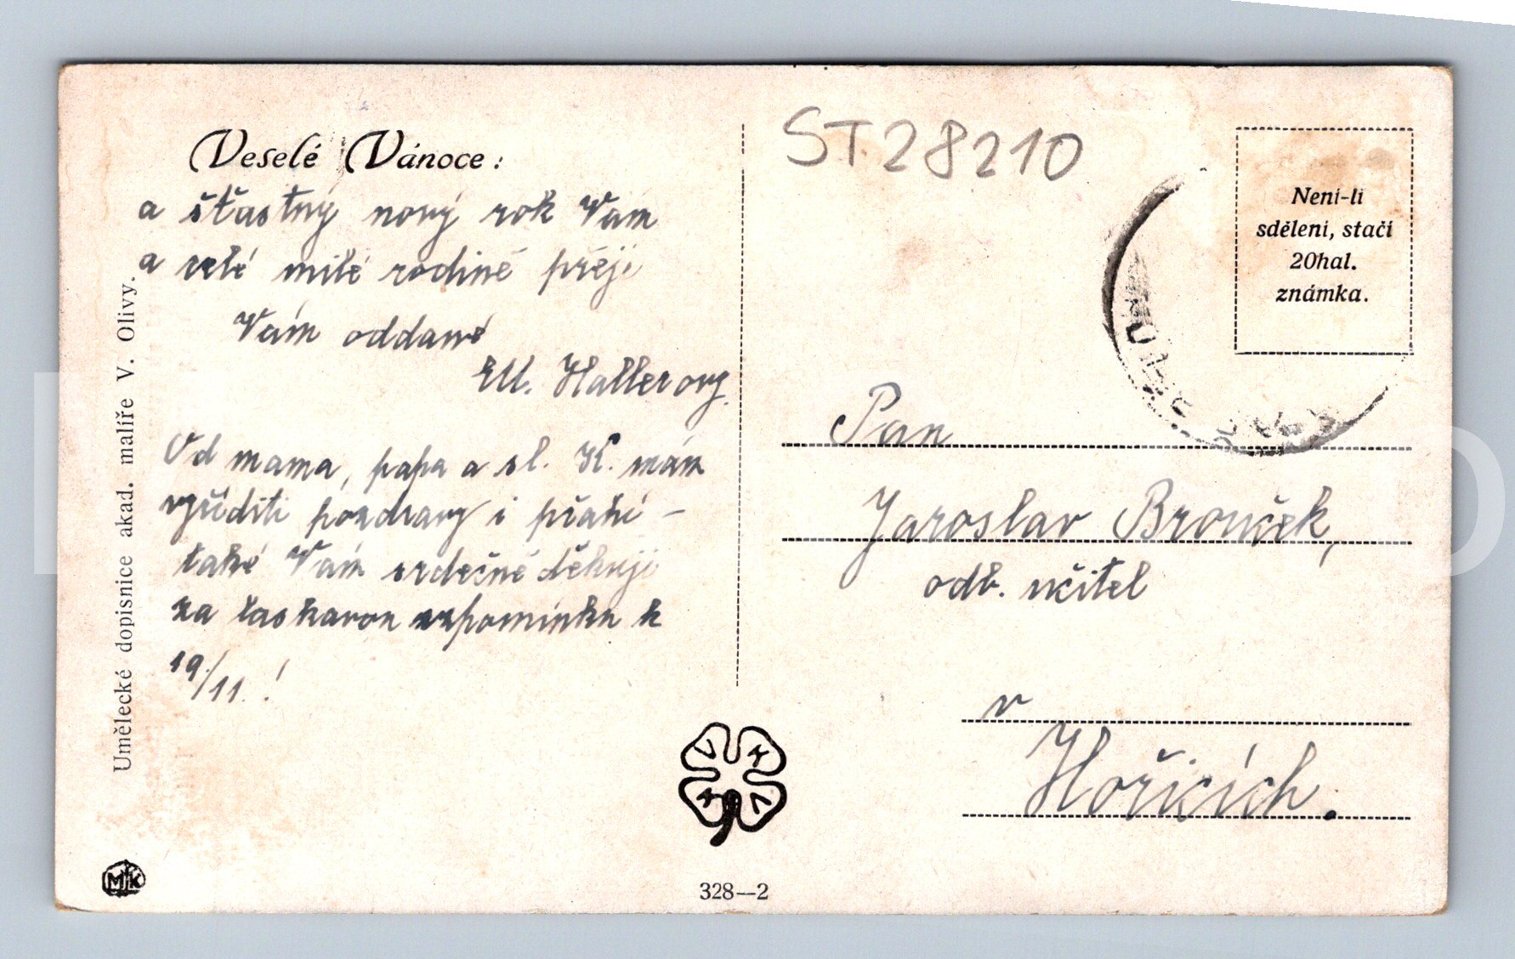 Veselé Vánoce:
a šťastný nový rok Vám
a celé milé rodině přeji
Vám oddaná
M. Hallerovy.
Od mama, papa a sl. K. mám
vyříditi pozdravy i přání –
také Vám srdečně děkuji
za laskavou vzpomínku k
19/11.!
Umělecké dopisnice akad. malíře V. Olivy.
MK
328—2
ST28210
Není-li
sdělení, stačí
20hal.
známka.
Pan
Jaroslav Brouček,
odb. učitel
v
Hořicích.